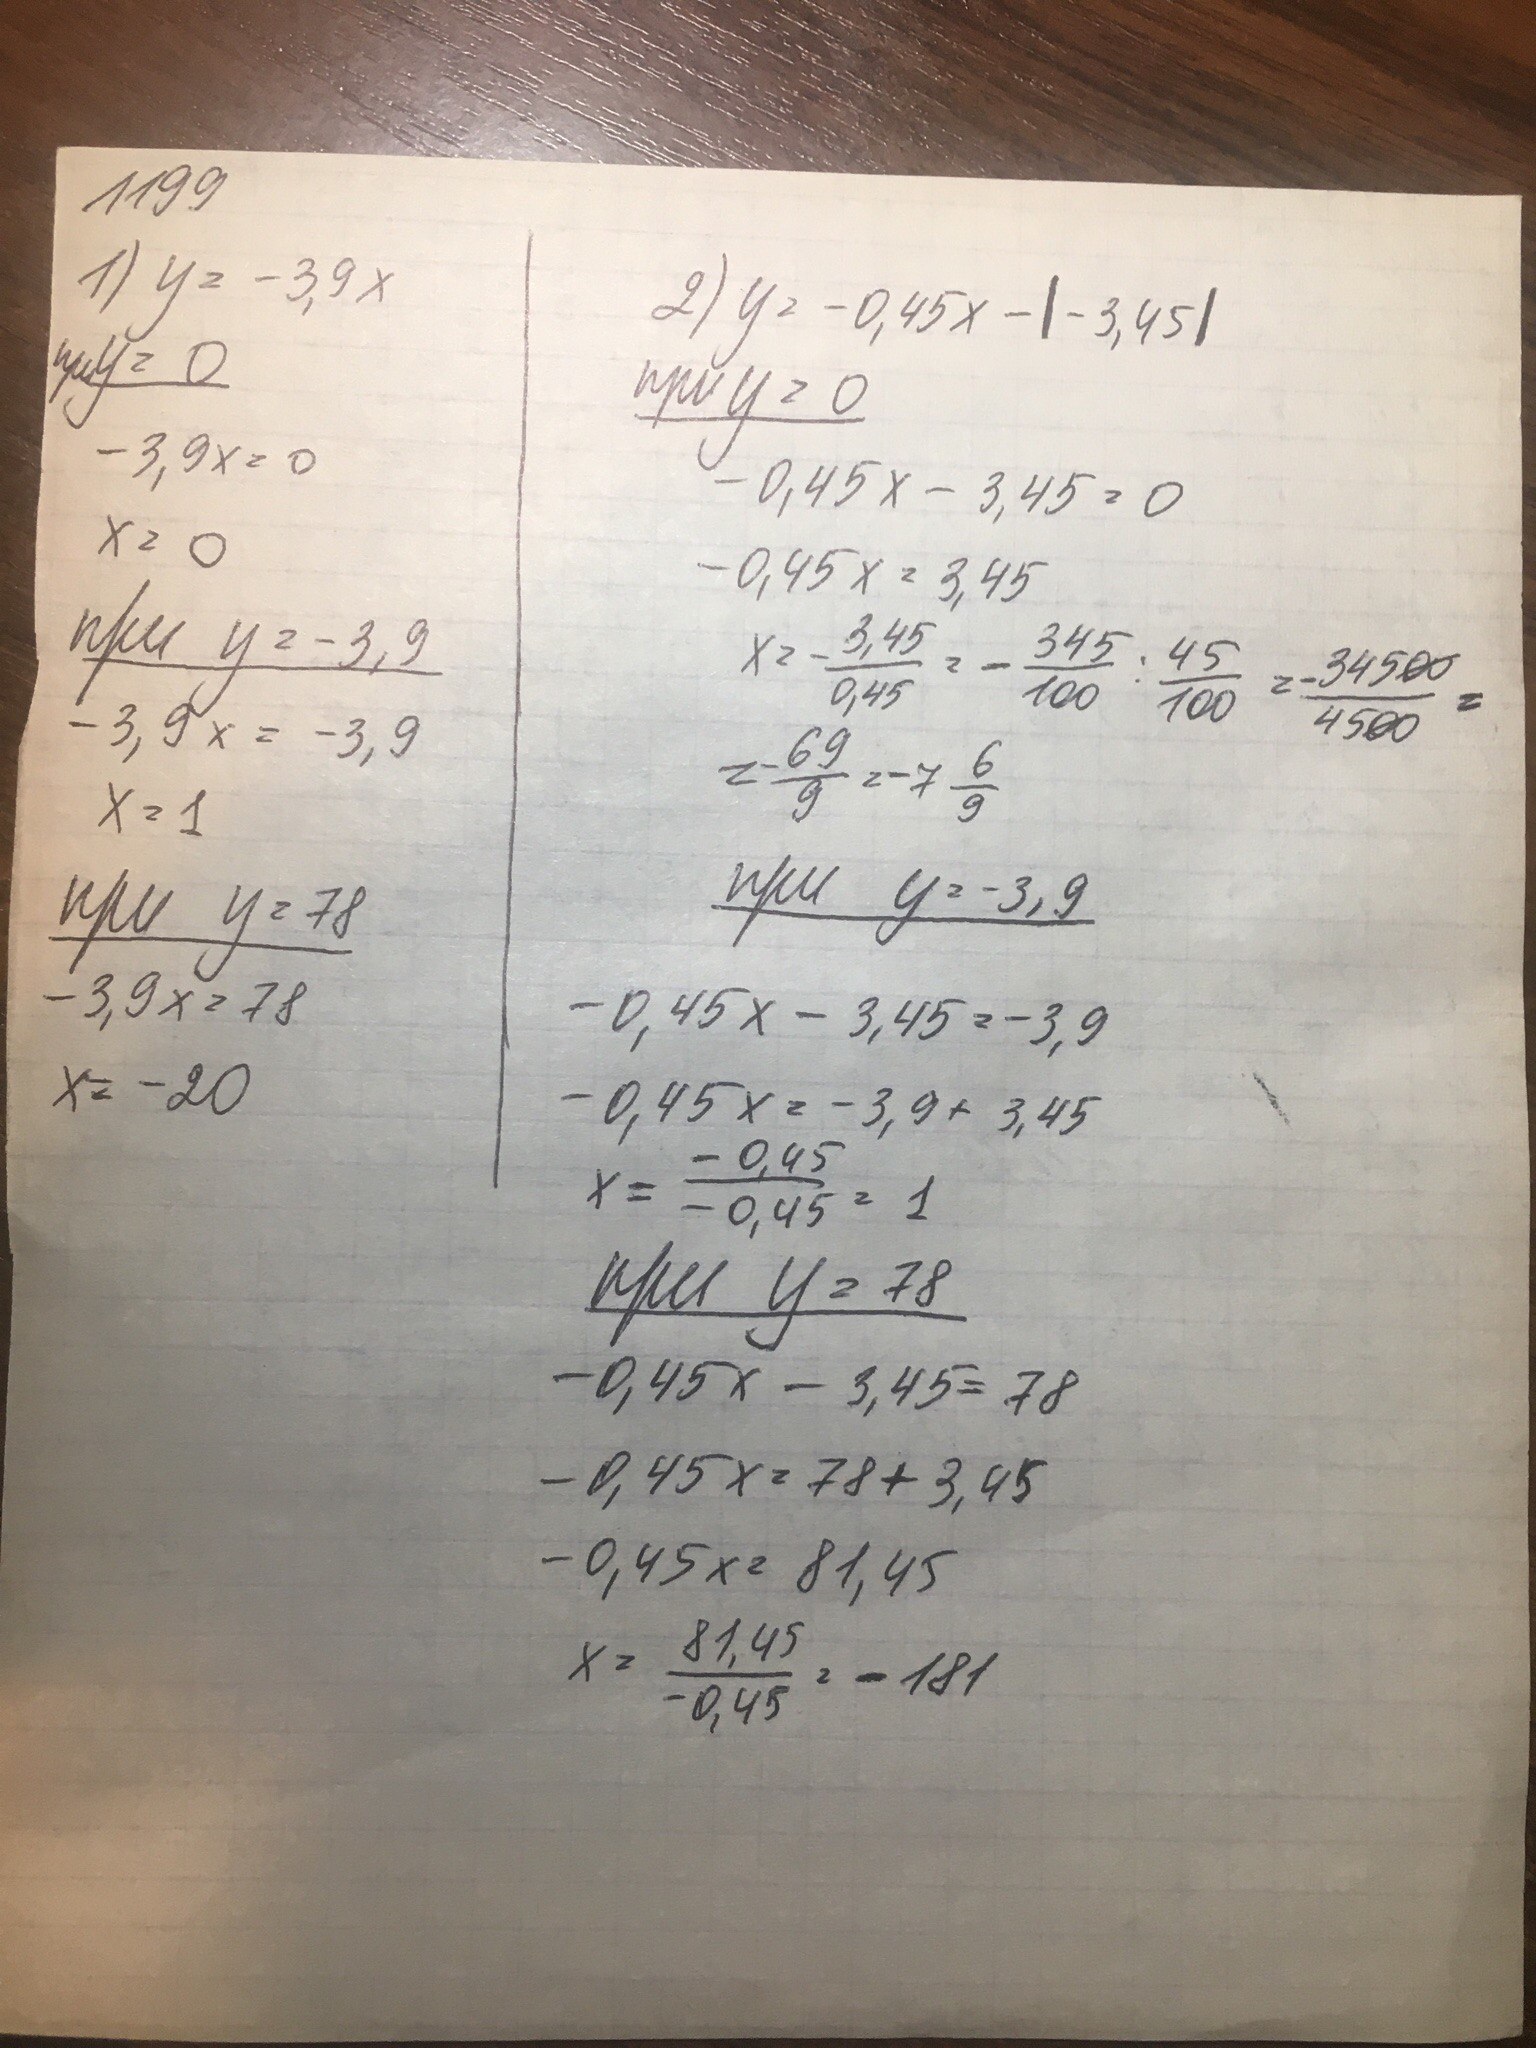 1199
1) y = -3,9x
при y = 0
-3,9x = 0
x = 0
при y = -3,9
-3,9x = -3,9
x = 1
при y = 78
-3,9x = 78
x = -20
2) y = -0,45x - |-3,45|
при y = 0
-0,45x - 3,45 = 0
-0,45x = 3,45
x = -3,45/0,45 = -345/100 : 45/100 = -34500/4500 =
= -69/9 = -7 6/9
при y = -3,9
-0,45x - 3,45 = -3,9
-0,45x = -3,9 + 3,45
x = -0,45/-0,45 = 1
при y = 78
-0,45x - 3,45 = 78
-0,45x = 78 + 3,45
-0,45x = 81,45
x = 81,45/-0,45 = -181